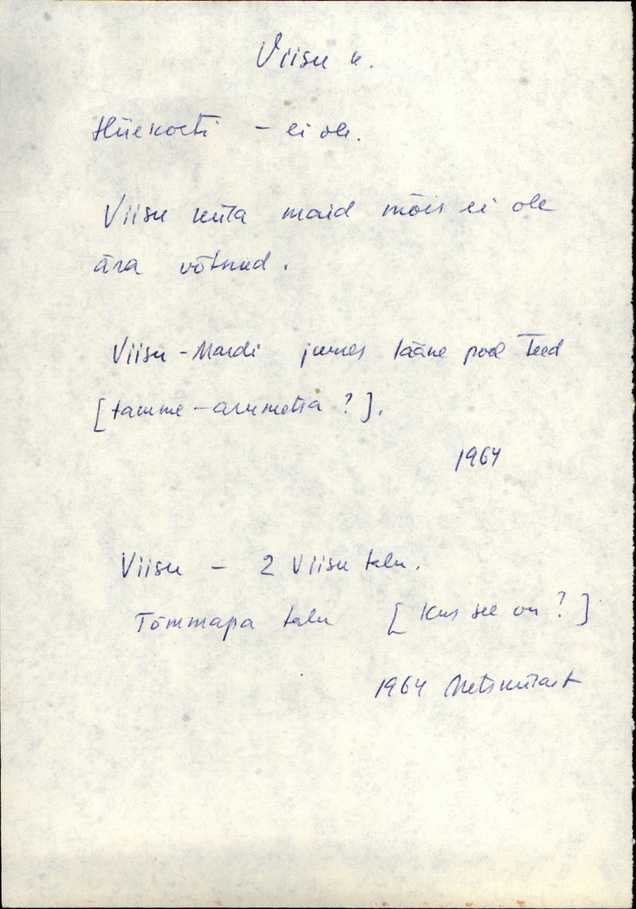 Viisu k.
Hiiekohti – ei ole.
Viisu küla maid mõis ei ole
ära võtnud.
Viisu-Mardi juures lääne pool teed
[tamme-arumetsa?].
1964
Viisu – 2 Viisu talu.
Tõmmapa talu [Kus see on?]
1964 Metskülast